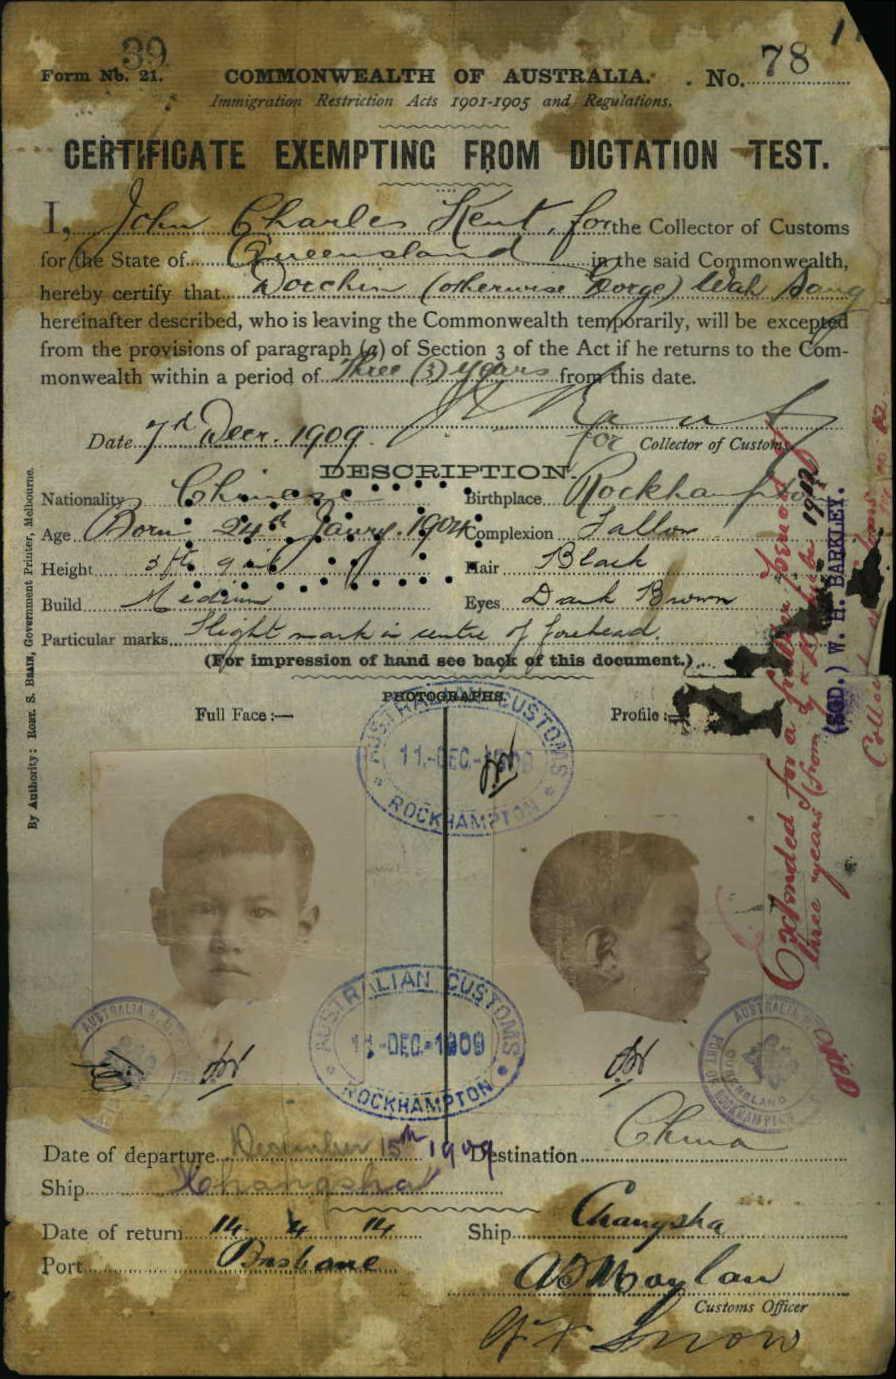 39
Form No. 21.
COMMONWEALTH OF AUSTRALIA.
No. 78
Immigration Restriction Acts 1901-1905 and Regulations.
CERTIFICATE EXEMPTING FROM DICTATION TEST.
I, John Charles Kent, for the Collector of Customs
for the State of Queensland in the said Commonwealth,
hereby certify that (otherwise George) Wah Sang
hereinafter described, who is leaving the Commonwealth temporarily, will be excepted
from the provisions of paragraph (a) of Section 3 of the Act if he returns to the Com-
monwealth within a period of Three (3) years from this date.
Date 7th Decr. 1909
for Collector of Customs
DESCRIPTION.
Nationality Chinese Birthplace Rockhampton
Age Born 24th Jany. 1904 Complexion Sallow
Height 3 ft 9 in Hair Black
Build Medium Eyes Dark Brown
Particular marks Slight mark in centre of forehead.
(For impression of hand see back of this document.)
PHOTOGRAPHS.
Full Face :— Profile :—
AUSTRALIAN CUSTOMS
11-DEC-1909
ROCKHAMPTON
AUSTRALIAN CUSTOMS
11-DEC-1909
ROCKHAMPTON
By Authority: ROBT. S. BRAIN, Government Printer, Melbourne.
Extended for a further period of
three years from
(SGD.) W. H. BARKLEY.
Date of departure December 15th 1909 Destination China
Ship Changsha
Date of return 14. 4. 14 Ship Changsha
Port Brisbane
Customs Officer
Snow